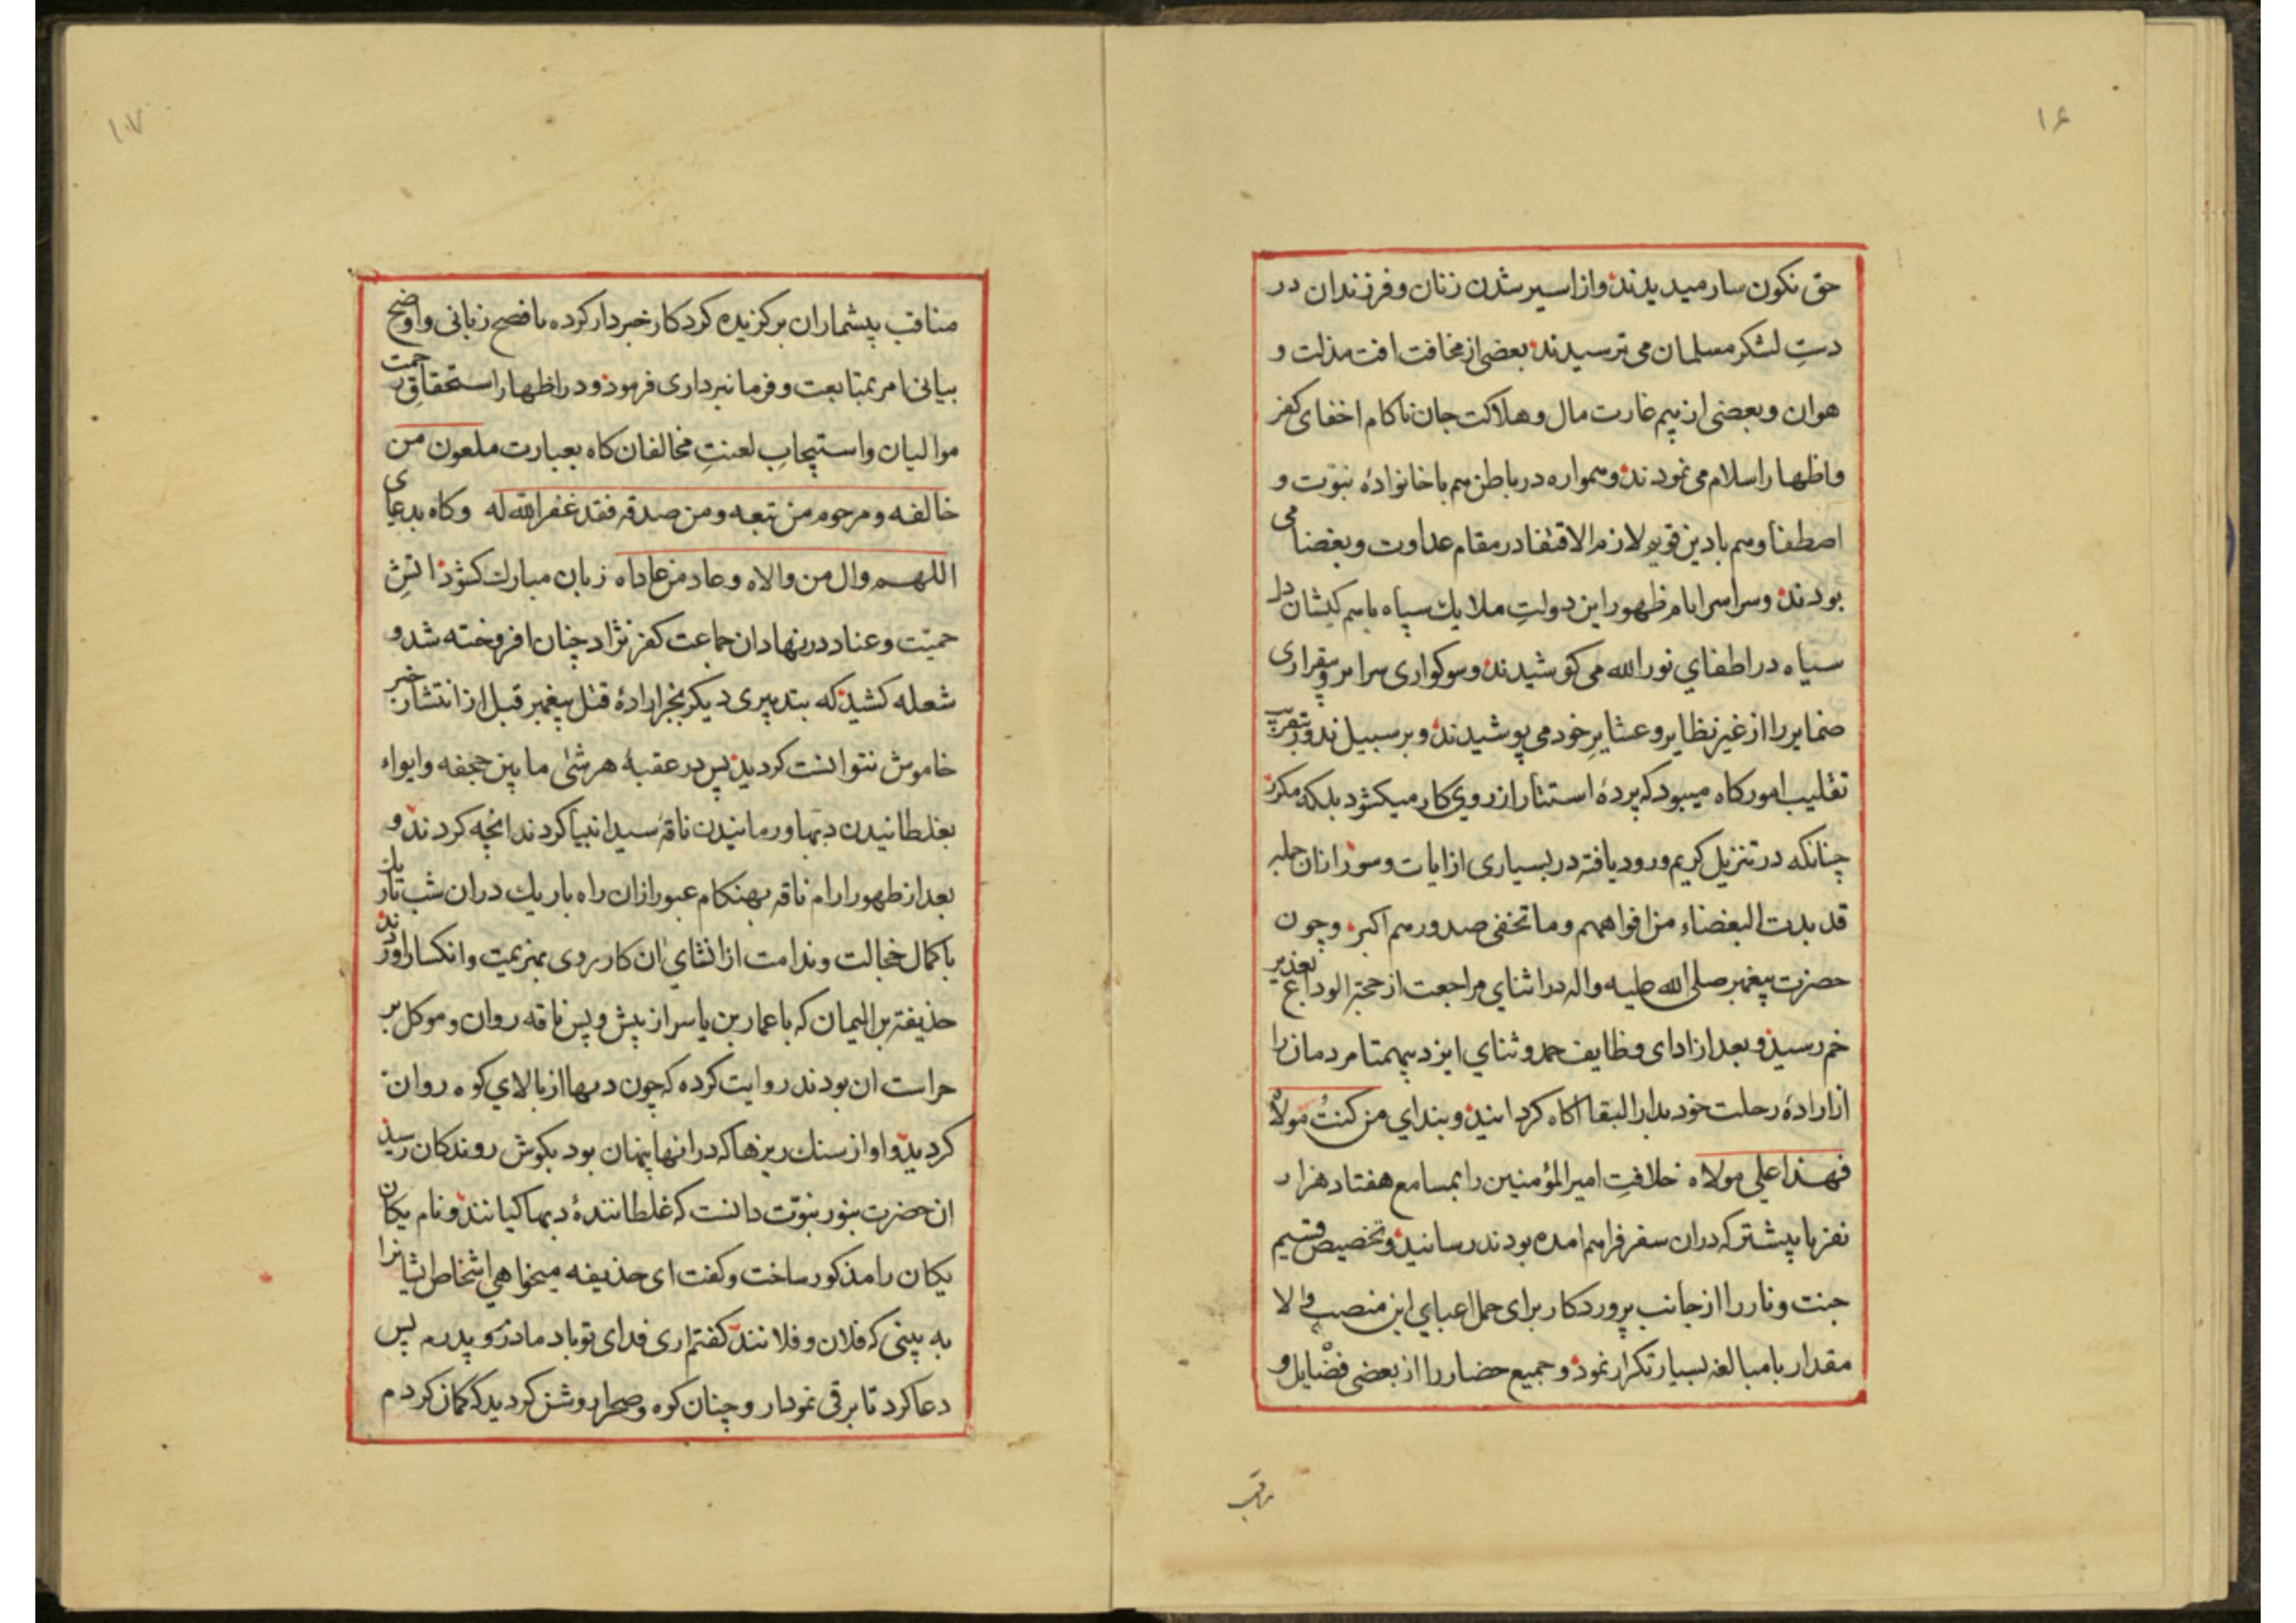 ۱۶
حق نکون سار میدیدند و از اسیر شدن زنان و فرزندان در
دستِ لشکر مسلمان می ترسیدند بعضی از مخافت افت مذلت و
هوان و بعضی از بیم غارت مال و هلاکت جان ناکام اخفای کفر
و اظهار اسلام می نمودند و همواره در باطن هم با خانوادۀ نبوّت و
اصطفا و هم با دین قویم لازم الاقتفا در مقام عداوت و بغضا می
بودند و سراسر ایام ظهور این دولتِ ملایك سپاه باهم کیشان دل
سیاه در اطفاي نور الله می کوشیدند و سوکواری سرایر و بیقراری
ضمایر را از غیر نظایر و عشایرِ خود می پوشیدند و بر سبیل ندور بتقریب
تقلیب امور کاه میبود که پردۀ استتار از روي کار میکشود بلکه مکرر
چنانکه در تنزیل کریم ورود یافته در بسیاری از ایات و سور از ان جمله
قد بدت البغضاء من افواههم و ما تخفی صدورهم اکبر و چون
حضرت پیغمبر صلی الله علیه واله در اثناي مراجعت از حجة الوداع بغدیر
خم رسید و بعد از ادای وظایف حمد و ثناي ایزد بیهمتا مردمان را
از ارادۀ رحلت خود بدار البقا اکاه کردانید و بنداي من کنتُ مولاه
فهذا علی مولاه خلافتِ امیر المؤمنین را بمسامع هفتاد هزار
نفر یا بیشتر که در ان سفر فراهم امده بودند رسانید و تخصیص قسیم
جنت و نار را از جانب پروردکار برای حمل اعباي این منصب والا
مقدار با مبالغه بسیار تکرار نمود و جمیع حضار را از بعضی فضایل و
۱۷
مناقب بیشمار ان برکزیده کردکار خبردار کرده بافصح زبانی و اوضح
بیانی امر بمتابعت و فرمانبرداری فرمود و در اظهار استحقاقِ رحمت
موالیان و استیجابِ لعنتِ مخالفان کاه بعبارت ملعون من
خالفه و مرحوم من تبعه و من صدقه فقد غفر الله له و کاه بدعای
اللهم وال من والاه و عاد من عاداه زبان مبارك کشود اتشِ
حمیّت و عناد در نهاد ان جماعت کفر نژاد چنان افروخته شد و
شعله کشید که بتدبیری دیکر بجز ارادۀ قتل پیغمبر قبل از انتشار خبر
خاموش نتوانست کردید پس در عقبۀ هرشی ما بین جحفه و ابواء
بغلطانیدن دبها و رمانیدن ناقۀ سید انبیا کردند انچه کردند و
بعد از ظهور ارام ناقه بهنکام عبور از ان راه باریك در ان شب تاریك
با کمال خجالت و ندامت از انشاي ان کار روی بهزیمت و انکسار اوردند
حذیفة بن الیمان که با عمار بن یاسر از پیش و پس ناقه روان و موکل بر
حراست ان بودند روایت کرده که چون دبها از بالاي کوه روان
کردید و اواز سنك ریزها که در انها پنهان بود بکوش روندکان رسید
ان حضرت بنور نبوّت دانست که غلطانندۀ دبها کیانند و نام یکان
یکان را مذکور ساخت و کفت ای حذیفه میخواهي اشخاص ایشانرا
به بینی که فلان و فلانند کفتم اری فدای تو باد مادرم و پدرم پس
دعا کرد تا برقی نمودار و چنان کوه و صحرا روشن کردید که کمان کردم